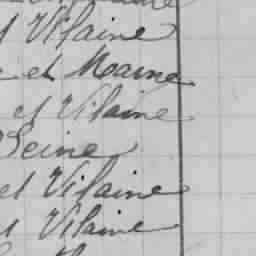 Vilaine
et Marne
et Vilaine
Seine
et Vilaine
Vilaine